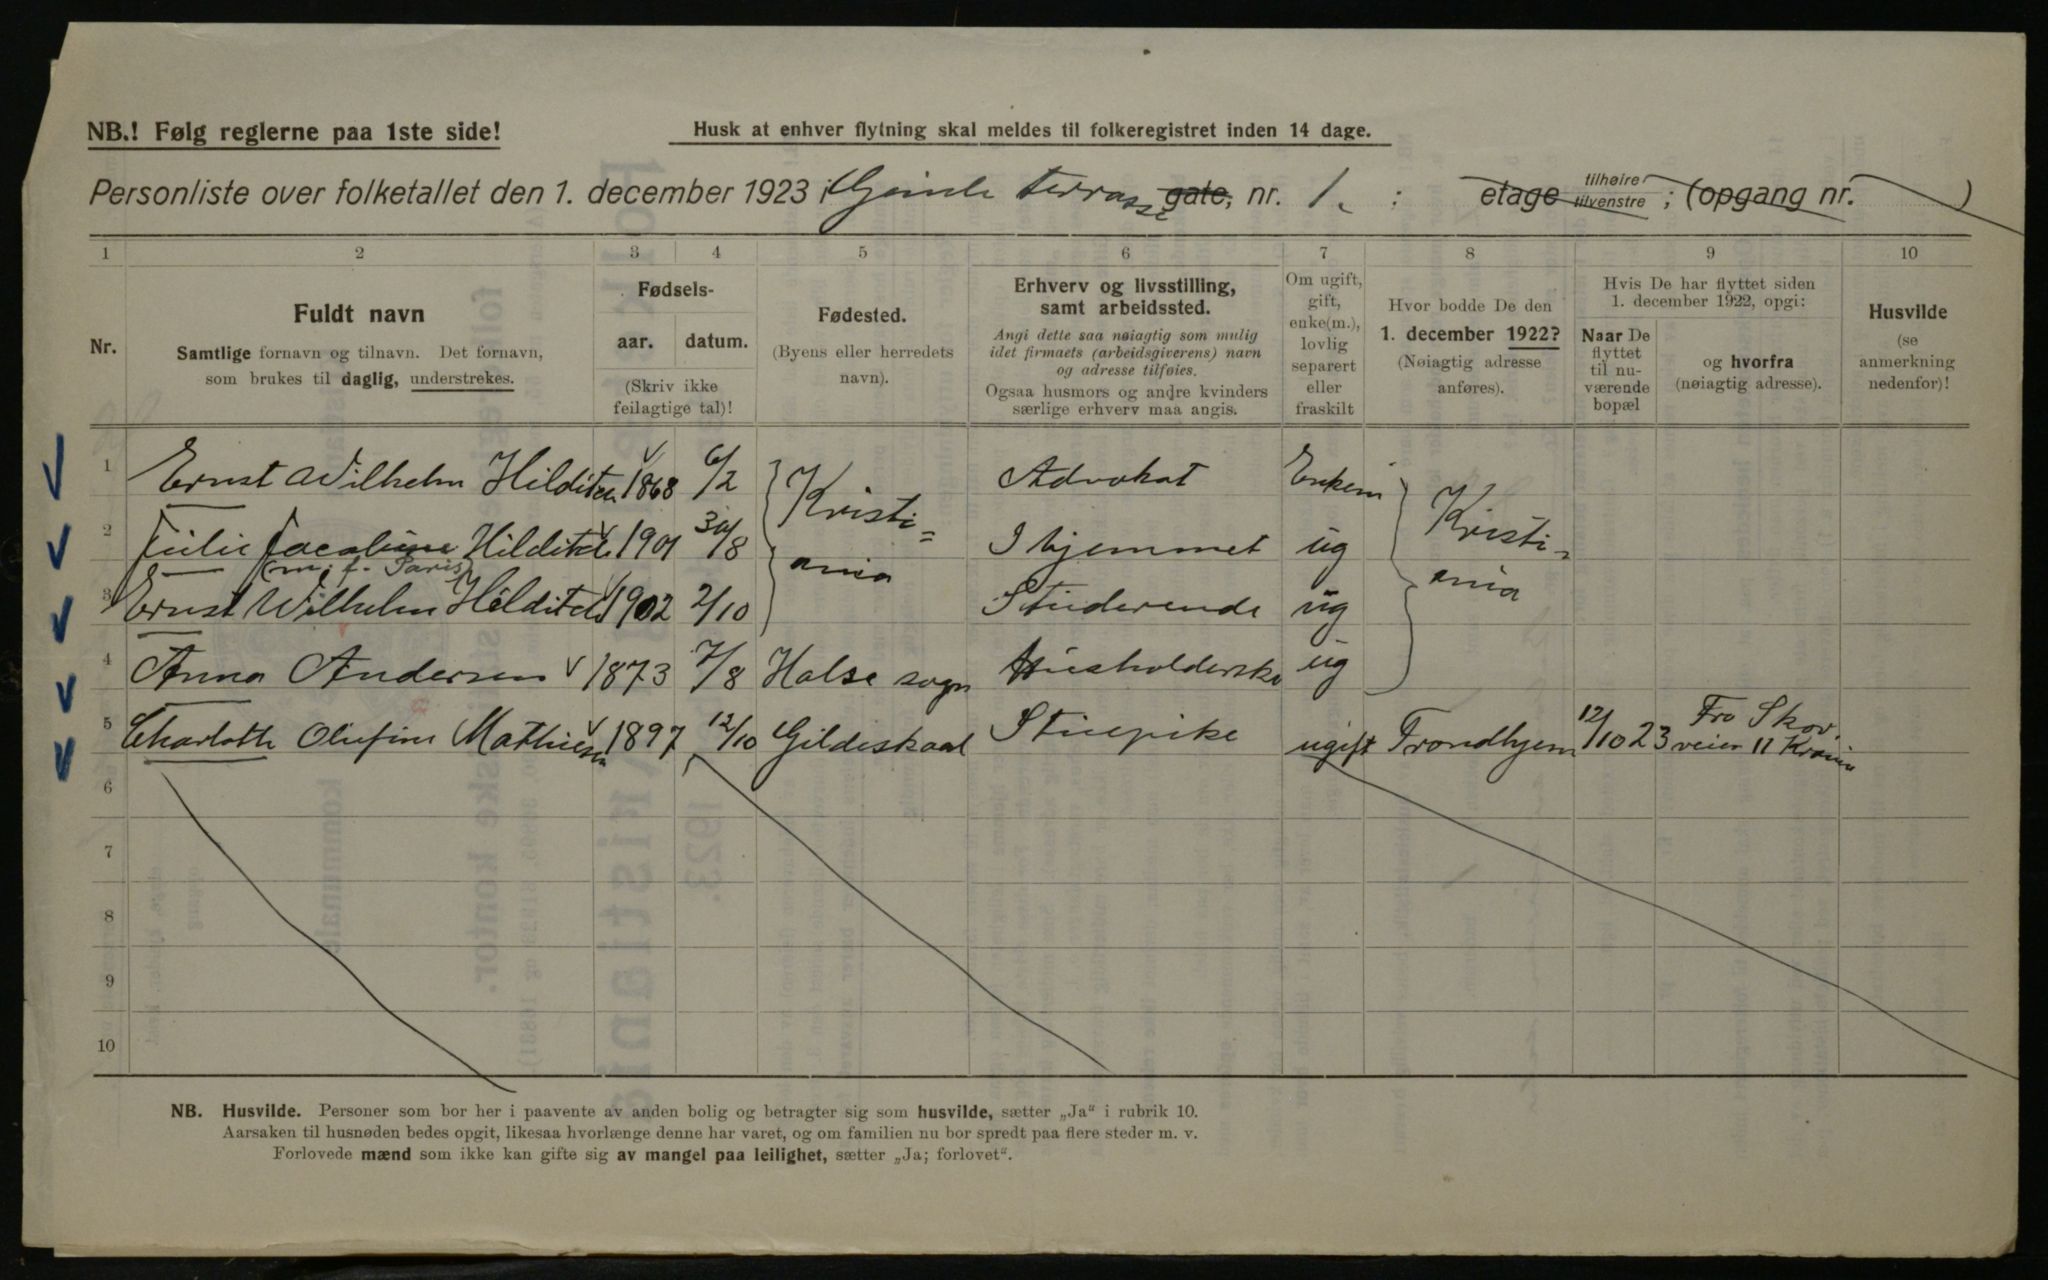 NB.! Følg reglerne paa 1ste side!
Husk at enhver flytning skal meldes til folkeregistret inden 14 dage.
Personliste over folketallet den 1. december 1923 i Gimle terrasse gate, nr. 1. ; etage tilhøire tilvenstre ; (opgang nr. )
1 2 3 4 5 6 7 8 9 10
Nr.
Fuldt navn
Samtlige fornavn og tilnavn. Det fornavn,
som brukes til daglig, understrekes.
Fødsels-
aar. datum.
(Skriv ikke
feilagtige tal)!
Fødested.
(Byens eller herredets
navn).
Erhverv og livsstilling,
samt arbeidssted.
Angi dette saa nøiagtig som mulig
idet firmaets (arbeidsgiverens) navn
og adresse tilføies.
Ogsaa husmors og andre kvinders
særlige erhverv maa angis.
Om ugift,
gift,
enke(m.),
lovlig
separert
eller
fraskilt
Hvor bodde De den
1. december 1922?
(Nøiagtig adresse
anføres).
Hvis De har flyttet siden
1. december 1922, opgi:
Naar De
flyttet
til nu-
værende
bopæl
og hvorfra
(nøiagtig adresse).
Husvilde
(se
anmerkning
nedenfor)!
1 Ernst Wilhelm Hilditch 1868 6/2 Kristi= Advokat Enkem Kristi=
2 Julie Jacobine Hilditch 1901 30/8 ania I hjemmet ug ania
(m. f. Paris)
3 Ernst Wilhelm Hilditch 1902 2/10 Studerende ug
4 Anna Andersen 1873 7/8 Halse sogn Husholderske ug
5 Charlotte Olufine Mathiesen 1897 12/10 Gildeskaal Stuepike ugift Trondhjem 12/10 23 Fra Skov.
veien 11 Krania
6
7
8
9
10
NB. Husvilde. Personer som bor her i paavente av anden bolig og betragter sig som husvilde, sætter „Ja“ i rubrik 10.
Aarsaken til husnøden bedes opgit, likesaa hvorlænge denne har varet, og om familien nu bor spredt paa flere steder m. v.
Forlovede mænd som ikke kan gifte sig av mangel paa leilighet, sætter „Ja; forlovet“.